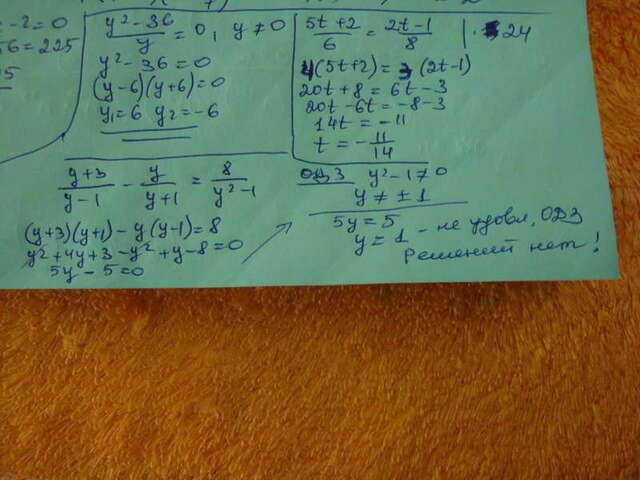 -2=0
56=225
(y²-36)/y=0, y≠0
y²-36=0
(y-6)(y+6)=0
y₁=6 y₂=-6
(5t+2)/6=(2t-1)/8 |·24
4(5t+2)=3(2t-1)
20t+8=6t-3
20t-6t=-8-3
14t=-11
t=-11/14
(y+3)/(y-1)-y/(y+1)=8/(y²-1)
(y+3)(y+1)-y(y-1)=8
y²+4y+3-y²+y-8=0
5y-5=0
ОДЗ y²-1≠0
y≠±1
5y=5
y=1 - не удовл. ОДЗ
Решений нет!